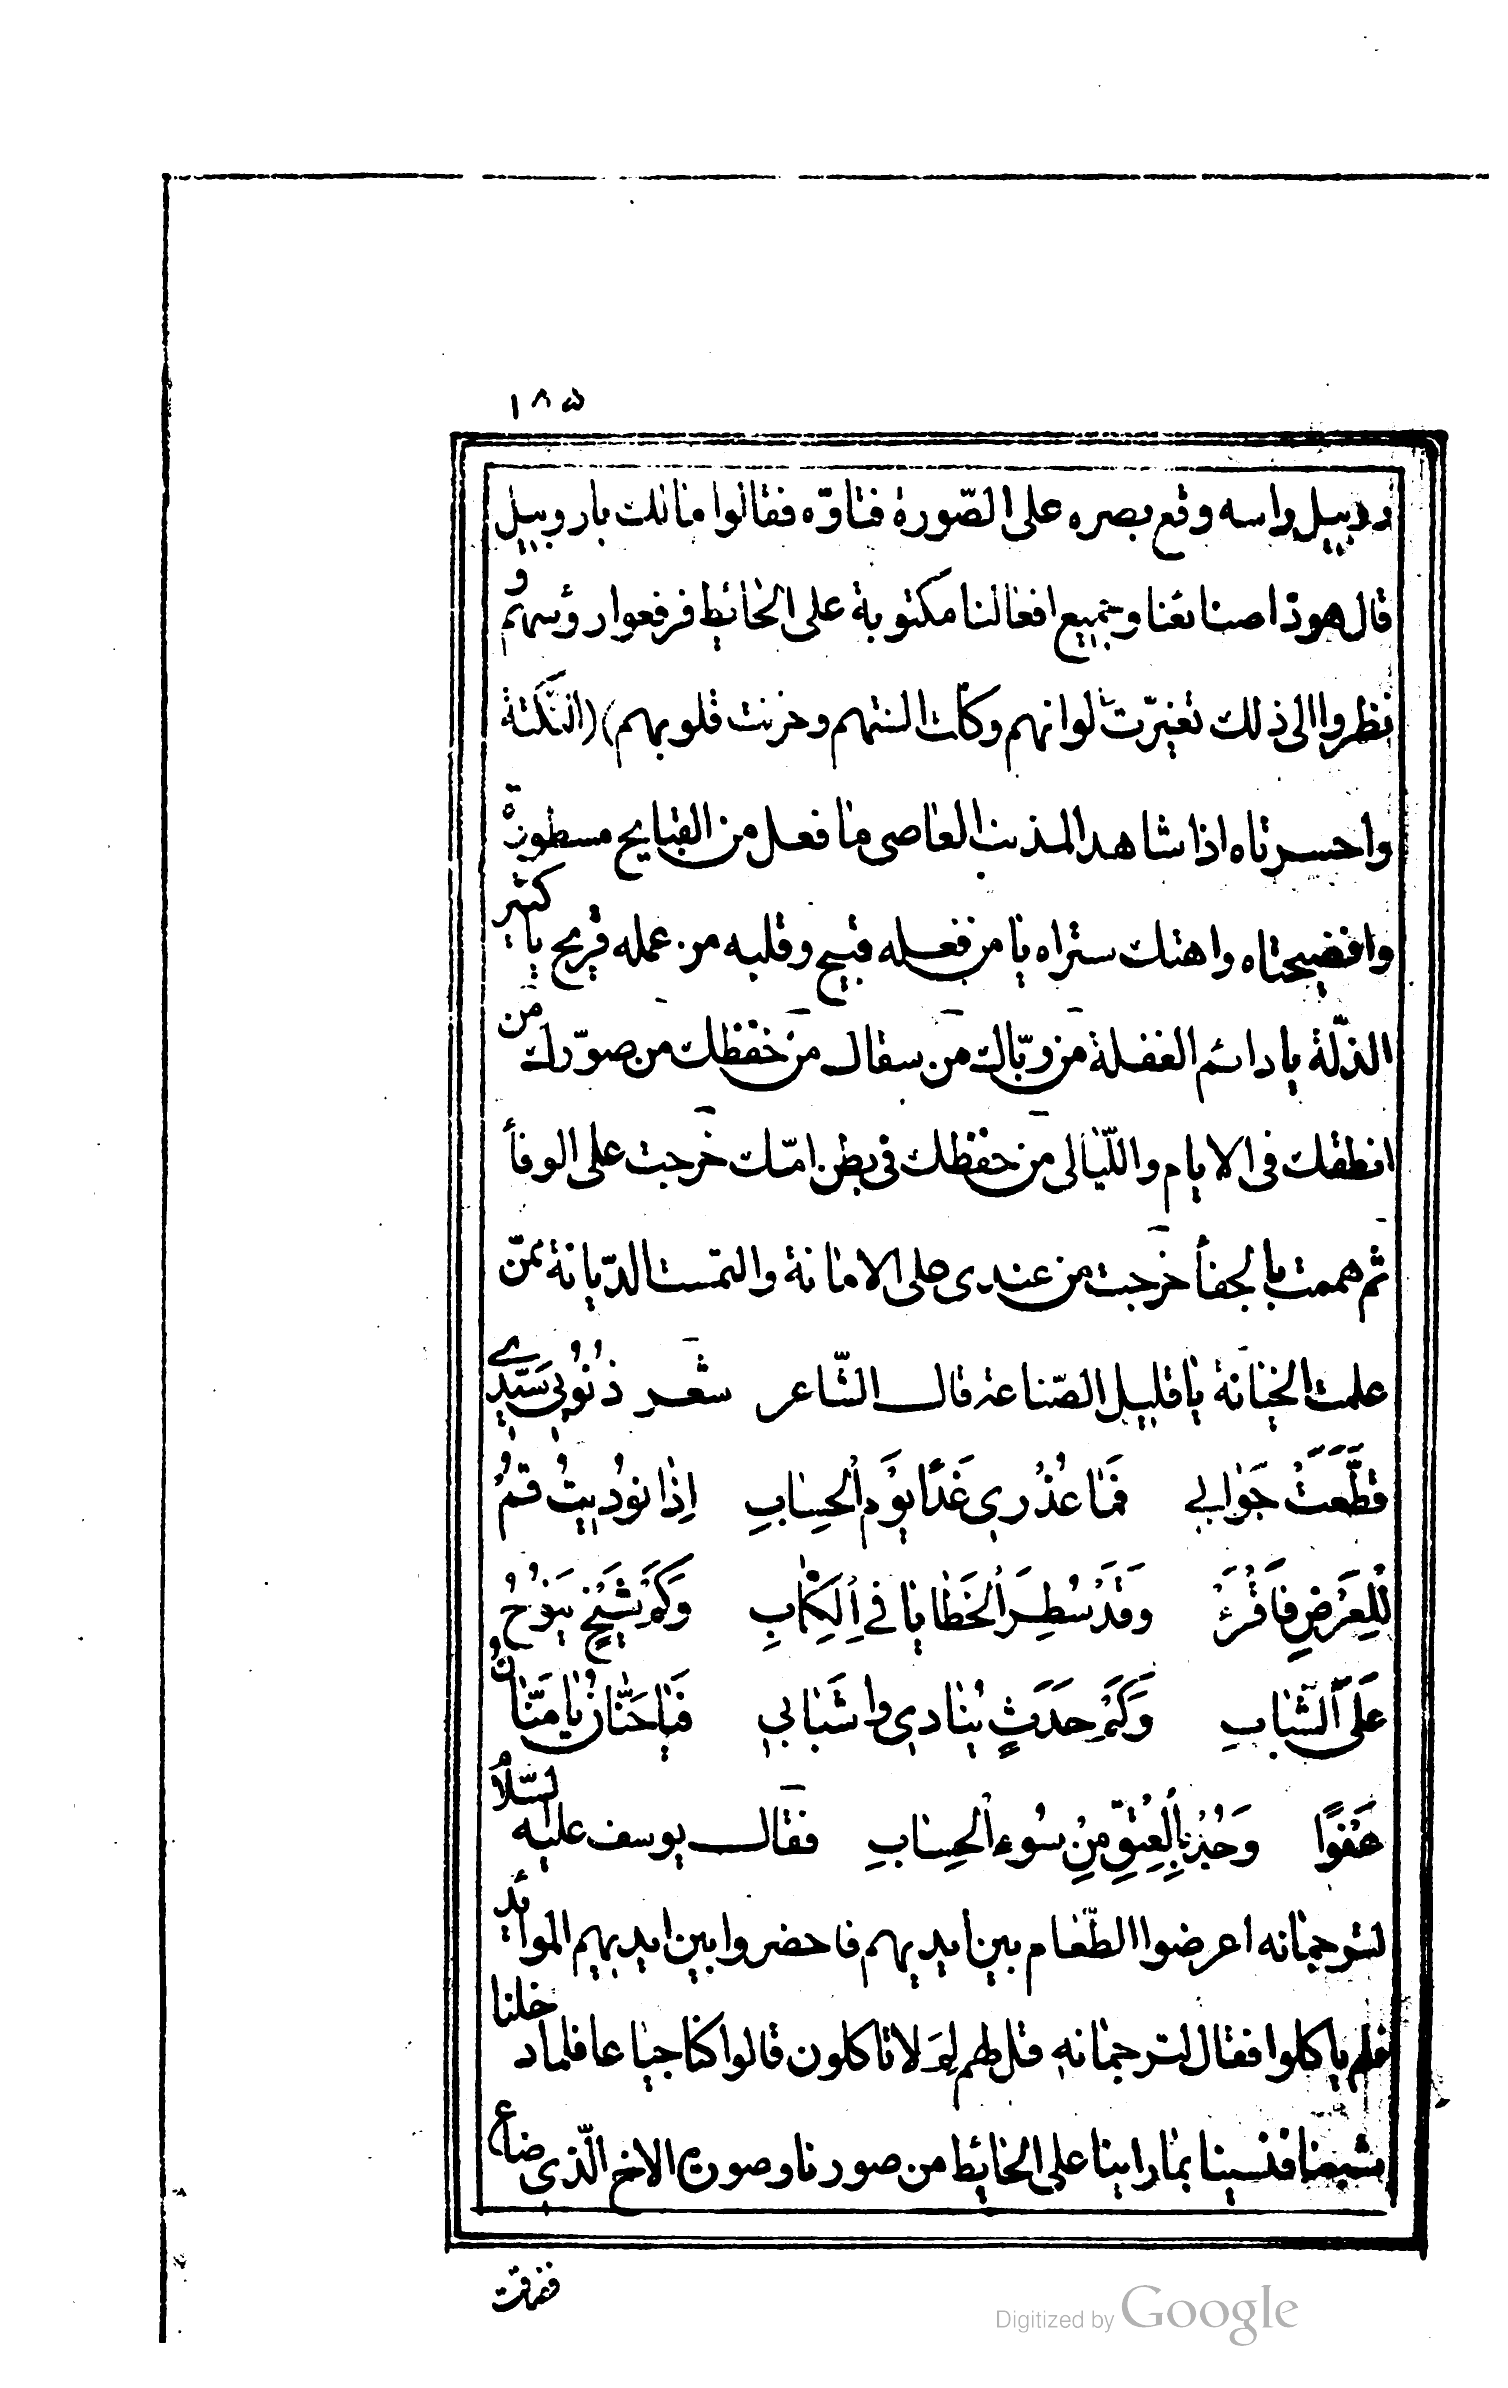 ۱۸۵
روبيل راسه وقع بصره على الصّورة فتاوّه فقالوا مالك ياروبيل
قال هوذا صنائعنا وجميع افعالنا مكتوبة على الحائيط فرفعوا رؤسهم و
نظروا الى ذلك تغيرّت الوانهم وكلت السنتهم وحزنت قلوبهم) (النّكتة
واحسرتاه اذا شاهد المذنب العاصى ما فعل من القبايح مسطورة
وافضيحتاه واهتك ستراه يا من فعله قبيح وقلبه من عمله قريح يا كثير
الذلّة يا دائم الغفلة من ربّاك من سقاك من حفظك من صوّرك من
انطقك فى الايام واللّيالى من حفظك فى بطن امّك خرجت على الوفأ
ثم هممت بالجفأ خرجت من عندى على الامانة والتمست الدّيانة ثمّ
علمت الخيانة يا قليل الصّناعة قال الشّاعر شعر ذُنُوبي سَيّدِي
قَطَّعَتْ جَوابي فَمَا عُذُرِي غَدًا يَوْمَ الْحِسَابِ اِذَا نُودِيتُ قُمْ
لِلْعَرْضِ فَاقْرَءْ وَقَدْ سُطِرَ الْخَطَايَا فِي الْكِتَابِ وَكَمْ شَيْخٍ يَنُوحُ
عَلَى الشَّبَابِ وَكَمْ حَدَثٍ يُنَادِي وا شَبَابِي فَيَا حَنَّانُ يَا مَنَّانُ
عَفْوًا وَجُدْ بِالْعِتْقِ مِنْ سُوءِ الْحِسَابِ فقال يوسف عليه السّلام
لترجمانه اعرضوا الطّعام بين ايديهم فاحضروا بين ايديهم الموائد
فلم ياكلوا فقال لترجمانه قل لهم لِمَ لا تاكلون قالوا كنّا جياعا فلما دخلنا
شبعنا فنسينا بما راينا على الحائيط من صورنا وصورة الاخ الّذى ضاع
ففرقت
Digitized by Google